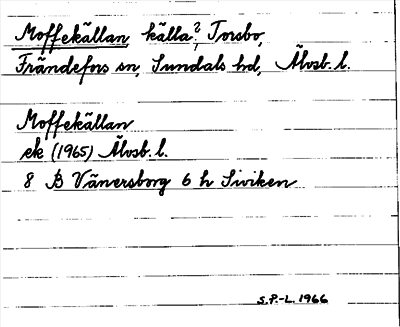 Moffekällan, källa?, Torsbo,
Frändefors sn, Sundals hd, Älvsb. l.
Moffekällan
ek (1965) Älvsb. l.
8 B Vänersborg 6 h Siviken
S.P.-L. 1966